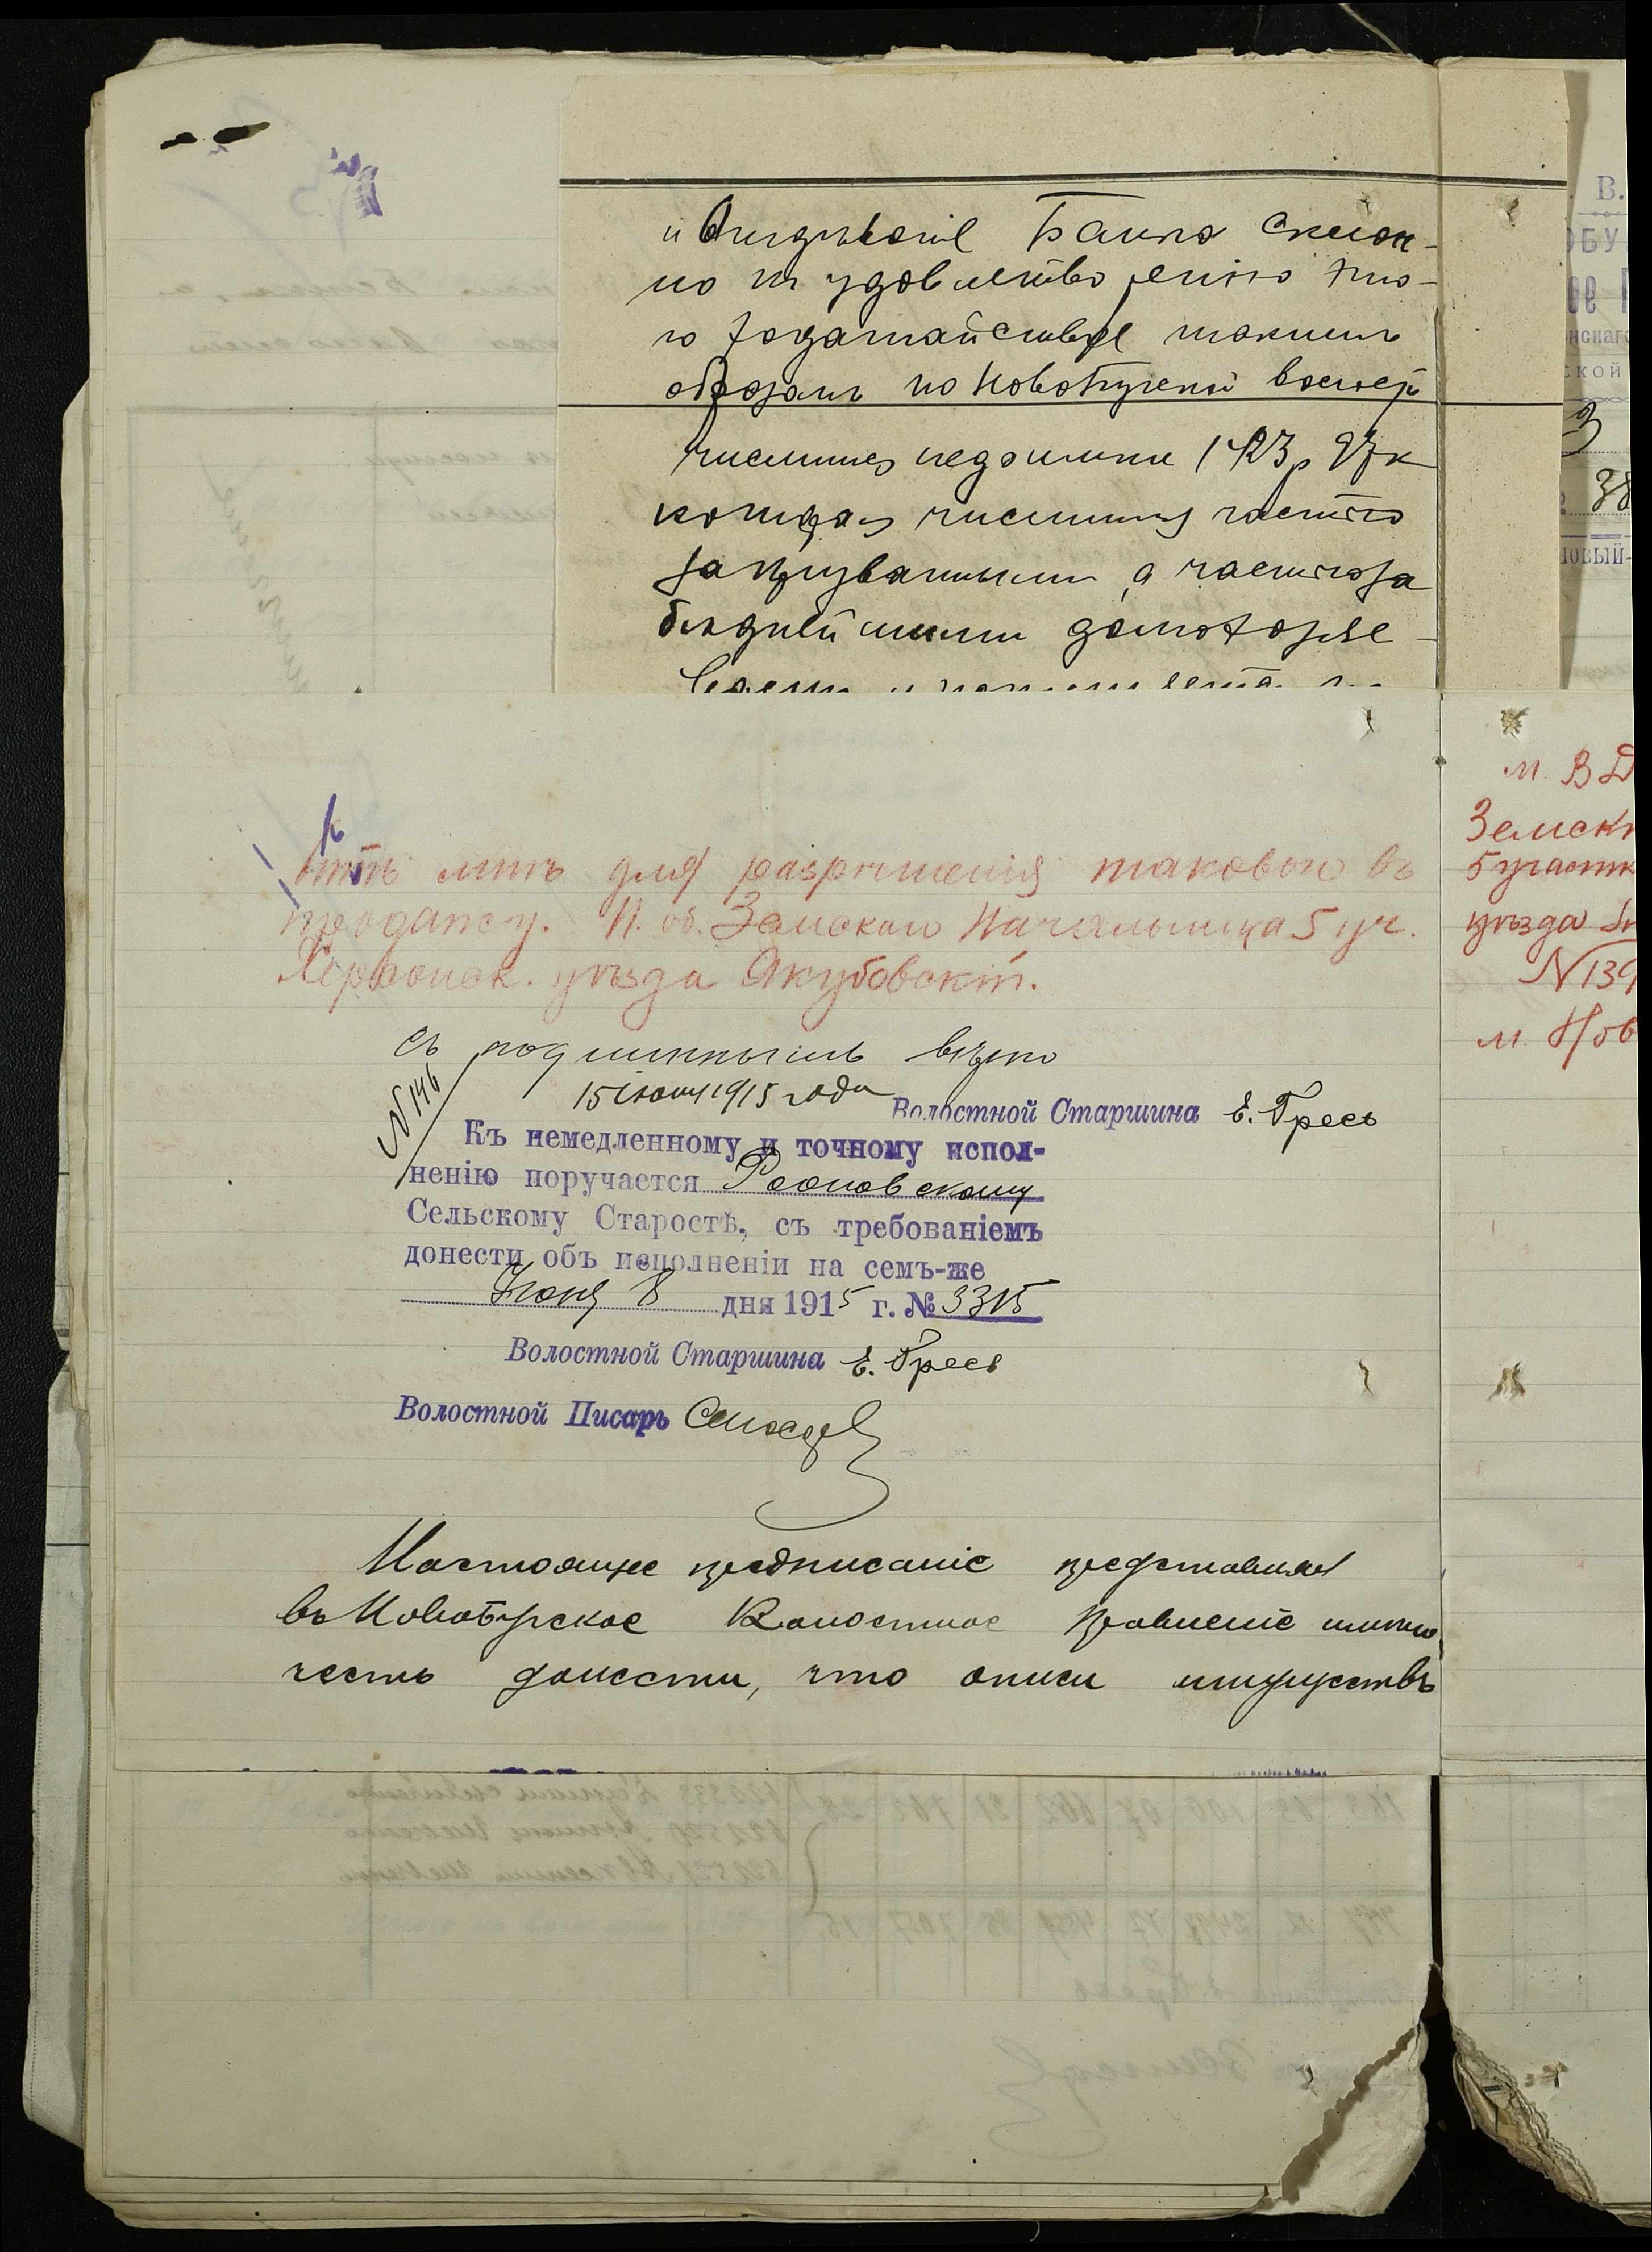 Банка склон-
но къ удовлетворенію это-
го ходатайства такимъ
образомъ по Новобугской волости
числится недоимки 1423 р 97 к
которая числится частью
за призванными, а частью за
бѣднѣйшими домохозяе-
вами
В.
ОБУ
нскаго
ской
3
38
новый-
мнѣ для разрѣшенія таковою въ
продажу. И. об. Земскаго Начальника 5 уч.
Херсонск. уѣзда Якубовскій.
м. В Д
Земск
5 участк
уѣзда
№ 139
м. Нов
съ подлиннымъ вѣрно
15 іюня 1915 года
Волостной Старшина Е. Гресь
№ 146
Къ немедленному и точному испол-
ненію поручается
Сельскому Старостѣ, съ требованіемъ
донести объ исполненіи на семъ-же
Іюня 8 дня 1915 г. № 3315
Волостной Старшина Е. Гресь
Волостной Писарь
Настоящее предписаніе представляя
въ Новобугское Волостное Правленіе имѣю
честь донести, что описи имуществъ